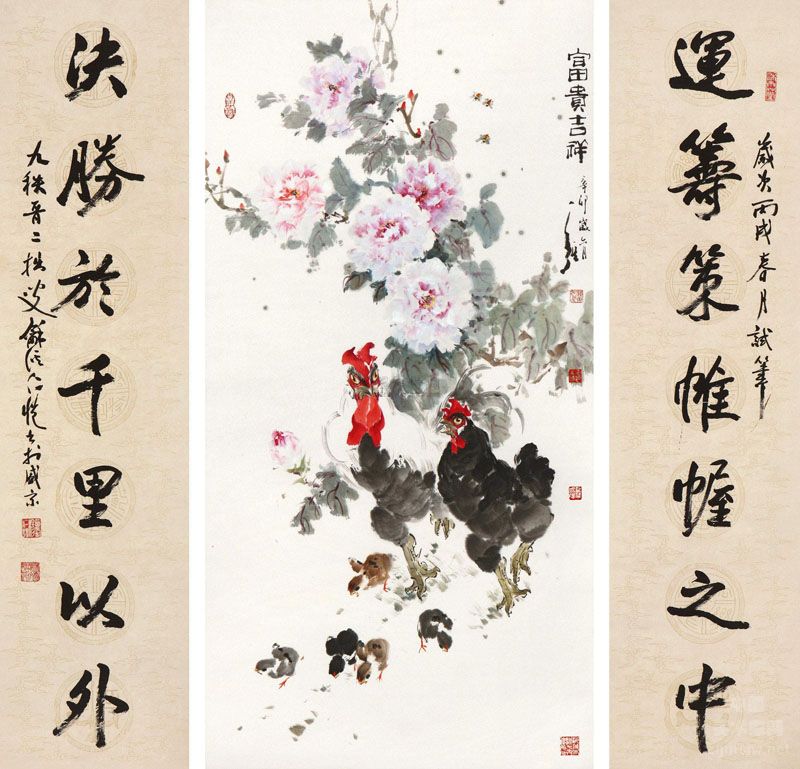 運籌策帷幄之中
歲次丙戌春月試筆
富貴吉祥
辛卯歲六月
決勝於千里以外
九秩晉二拙叟
書於盛京